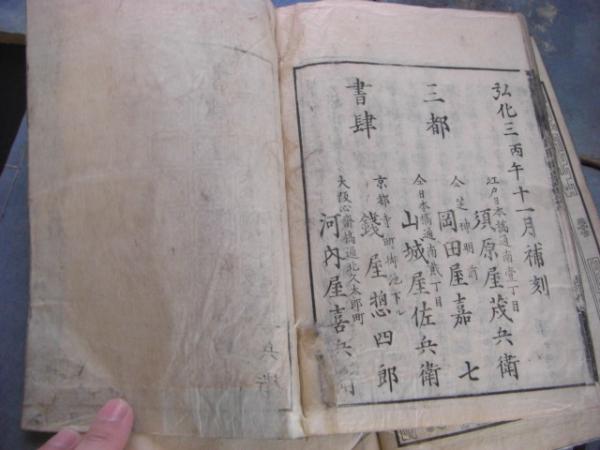 弘化三丙午十一月補刻
三都
書肆
江戸日本橋通南壹丁目
須原屋茂兵衛
仝芝神明前
岡田屋嘉七
仝日本橋通南貳丁目
山城屋佐兵衛
京都寺町御池下ル
錢屋惣四郎
大阪心齋橋通北久太郎町
河内屋喜兵衛